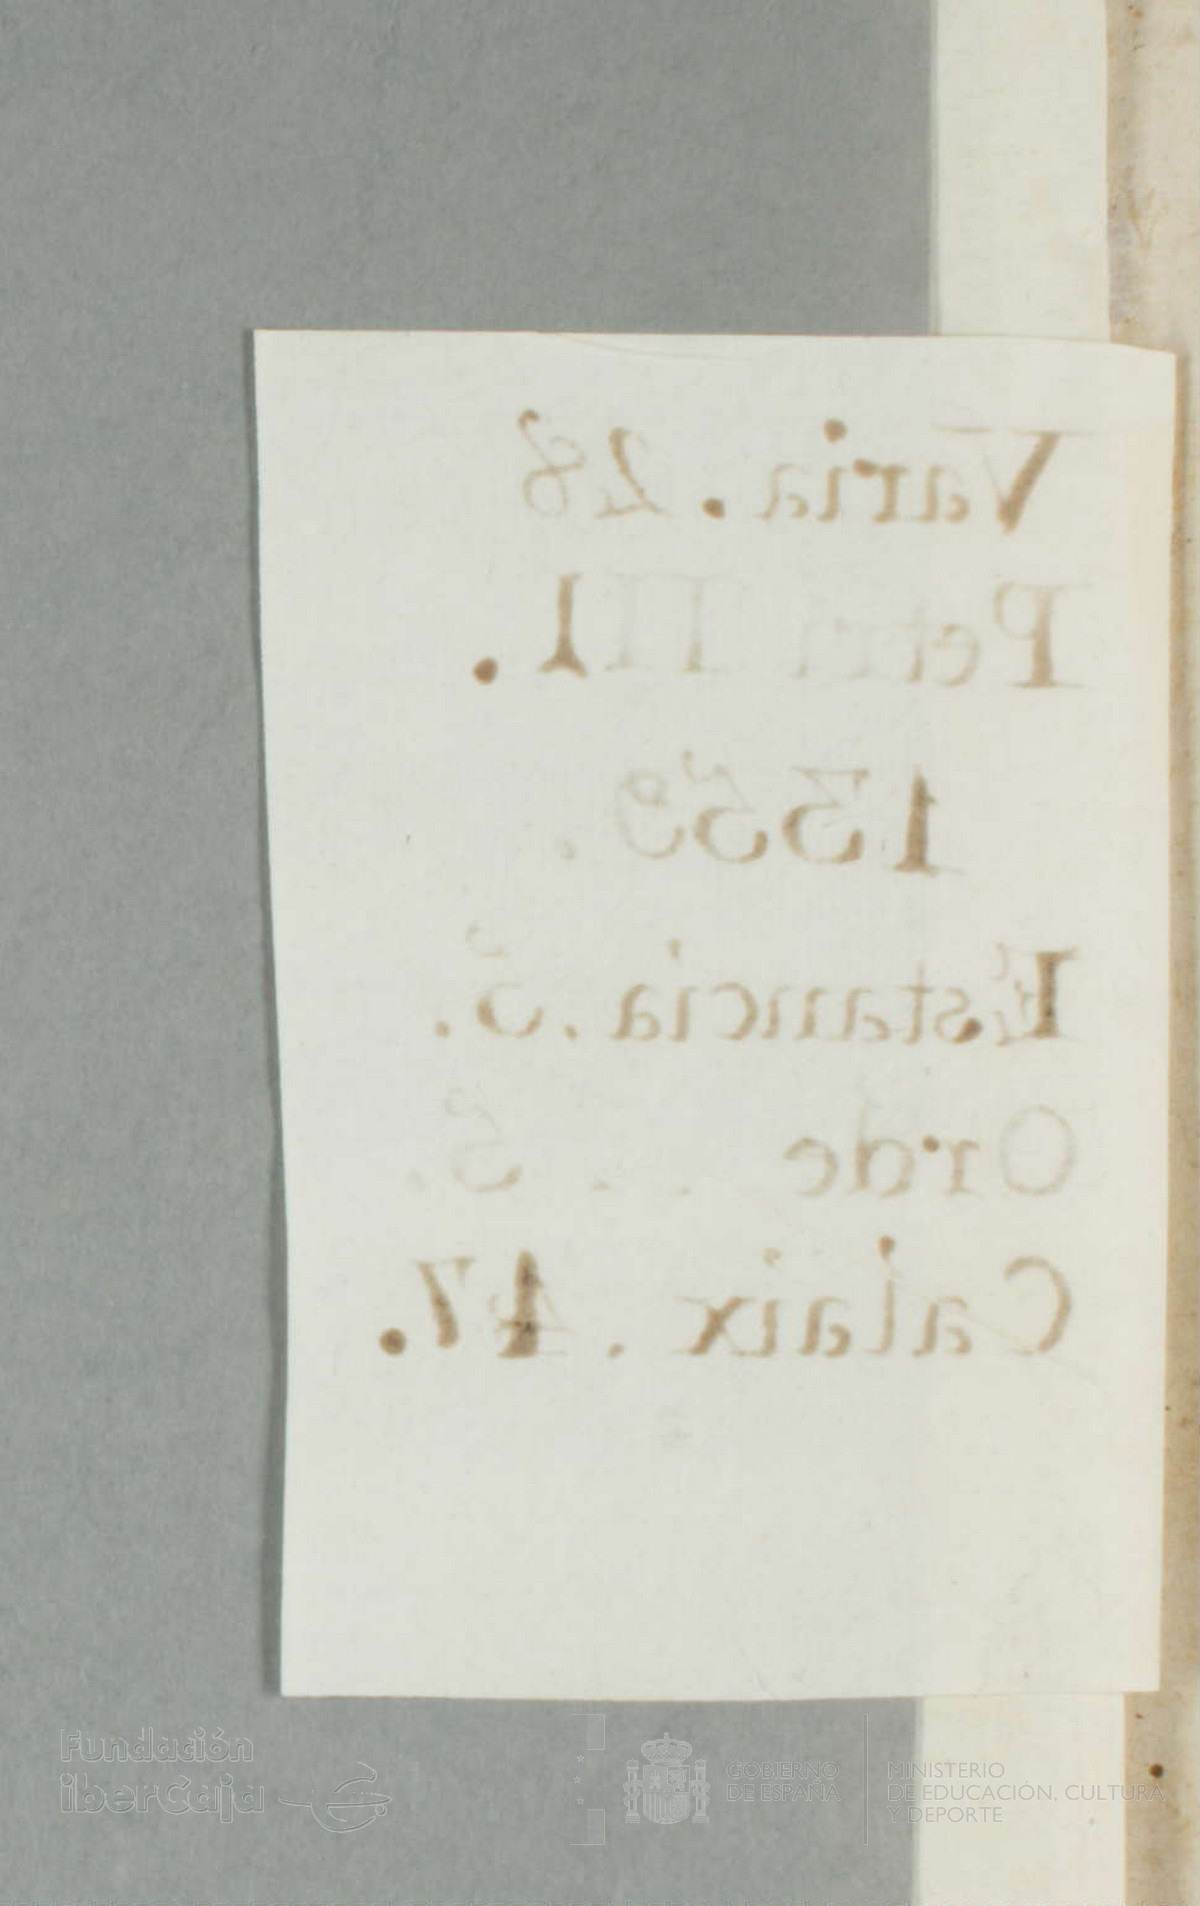 Varia. 28
Petri III.
1359.
Estancia. 5.
Orde . . 5.
Calaix. 47.
Fundación
iberCaja
GOBIERNO
DE ESPAÑA
MINISTERIO
DE EDUCACIÓN, CULTURA
Y DEPORTE